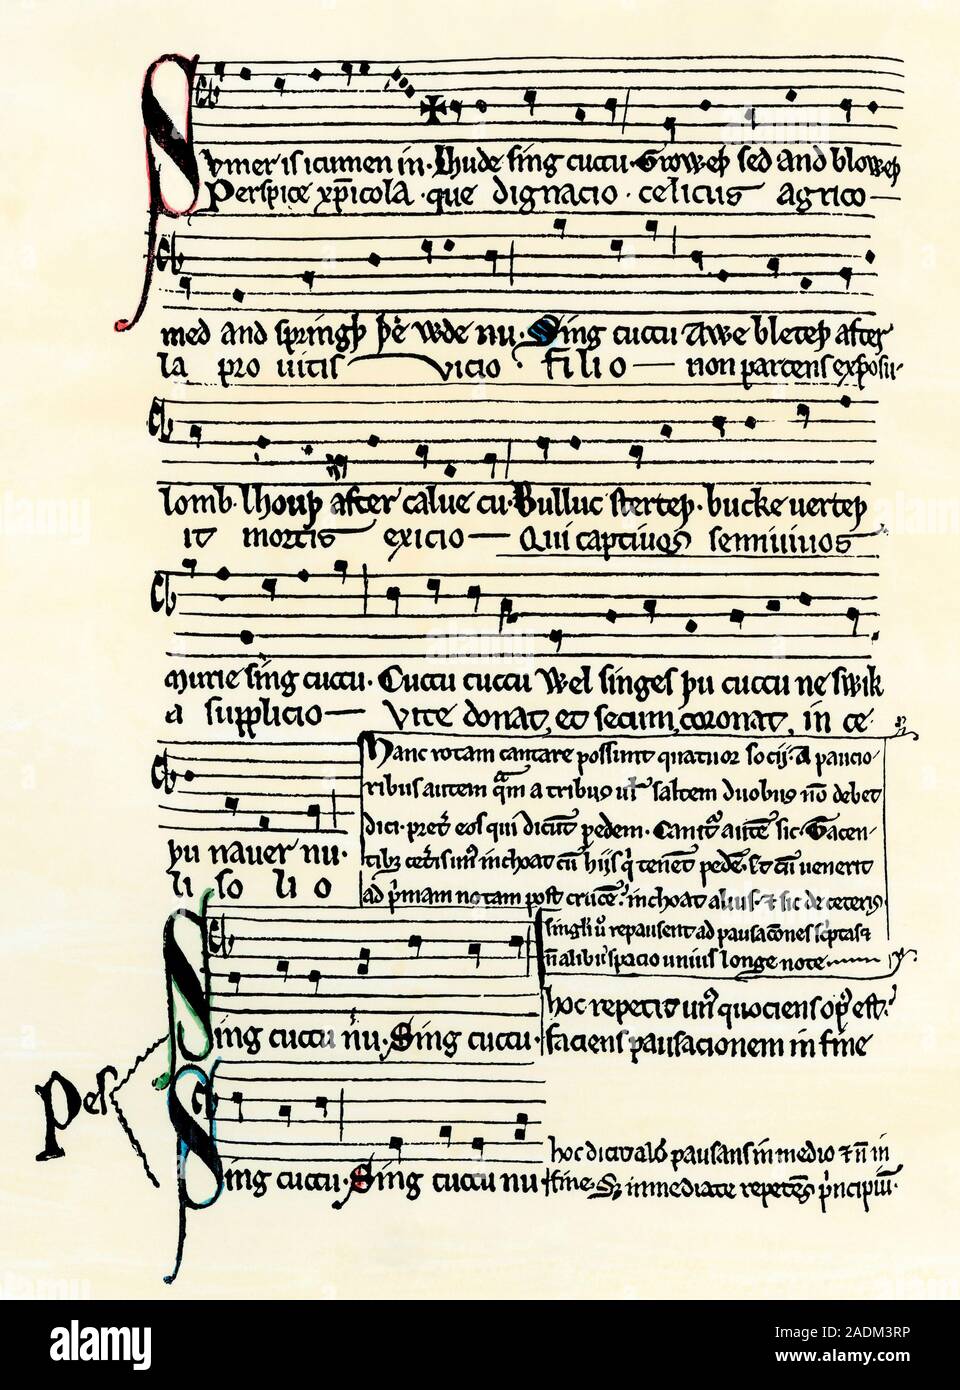 Sumer is icumen in · Lhude sing cuccu · Groweþ sed and bloweþ
Perspice xp̄icola · que dignacio · celicus agrico—
med and springþ þe wde nu · Sing cuccu Awe bleteþ after
la pro uitis vicio · filio — non parcens exposu-
lomb · lhouþ after calue cu · Bulluc sterteþ · bucke uerteþ
it mortis exicio — Qui captiuos semiuiuos
murie sing cuccu · Cuccu cuccu Wel singes þu cuccu ne swik
a supplicio — vite donat, et secum coronat, in ce-
þu nauer nu ·
li solio
Hanc rotam cantare possunt quatuor socij · A paucio-
ribus autem q̃m a tribus ul̃ saltem duobus nō debet
dici · pret̃ eos qui dicūt pedem · Canit̃ autē sic · Tacen-
tibȝ cet̃is un᷒ inchoat cū hijs q̇ tenēt pedē · Et cū uenerit
ad p̃mam notam post crucē · inchoat alius · & sic de ceteris
singl̃i ũ repausent ad pausacōnes sc̃ptas &
n̄ alibi spacio unius longe note
Sing cuccu nu · Sing cuccu ·
hoc repetit un᷒ quociens op᷒ est ·
faciens pausacionem in fine
Pes
Sing cuccu · Sing cuccu nu ·
hoc dicit al᷒ pausans in medio & n̄ in
fine · Sȝ immediate repetēs p̃ncipiū ·
alamy
Image ID: 2ADM3RP
www.alamy.com